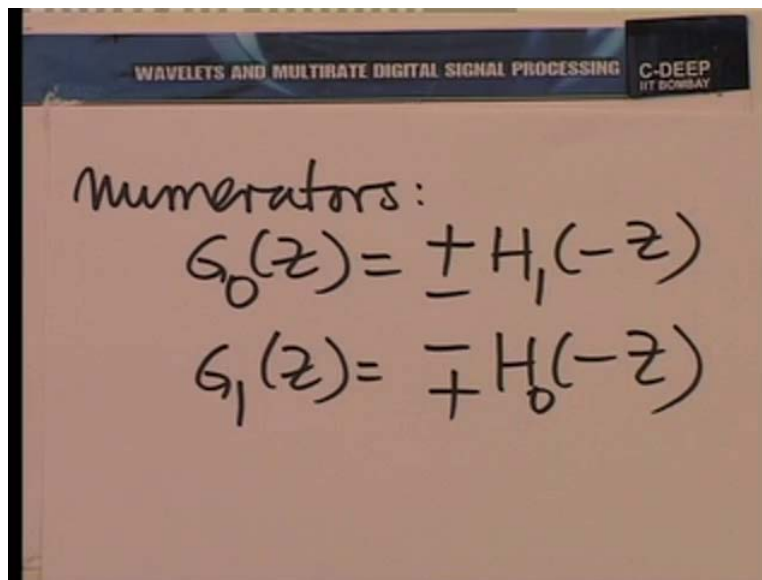 WAVELETS AND MULTIRATE DIGITAL SIGNAL PROCESSING
C-DEEP
IIT BOMBAY
Numerators:
G₀(Z) = ± H₁(-Z)
G₁(Z) = ∓ H₀(-Z)